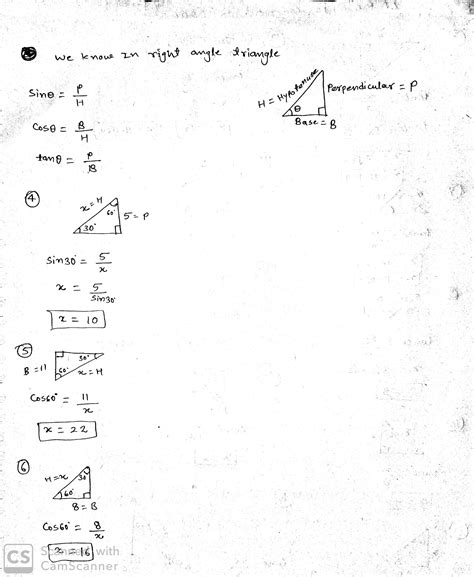 we know in right angle triangle
Sinθ = P/H
H = Hypotenuse
Perpendicular = P
θ
Base = B
Cosθ = B/H
tanθ = P/B
④
x = H
60°
5 = P
30°
Sin30° = 5/x
x = 5/Sin30
x = 10
⑤
30°
B = 11
60°
x = H
Cos60° = 11/x
x = 22
⑥
H = x
30°
60°
8 = B
Cos60° = 8/x
x = 16
CS
Scanned with
CamScanner